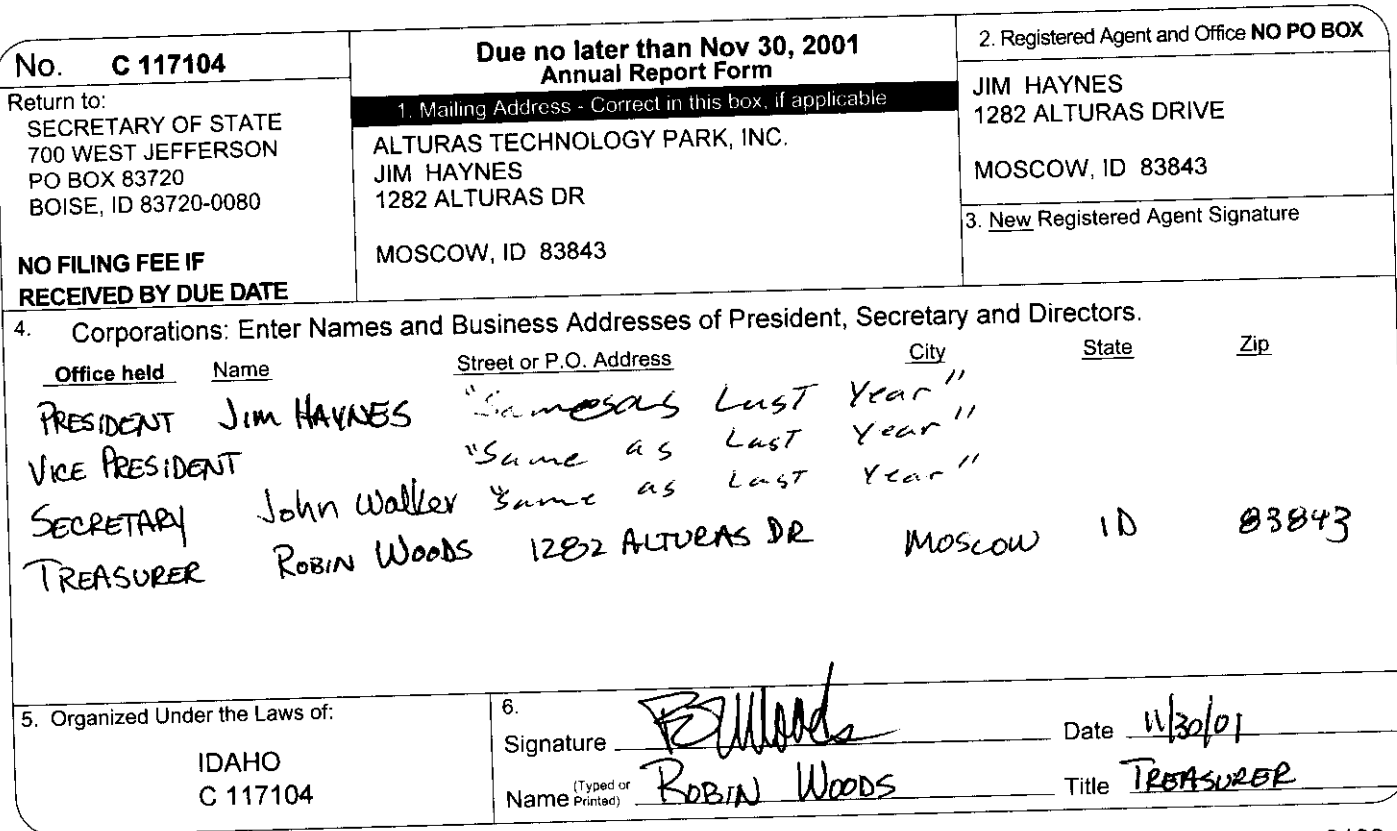 No. C 117104
Return to:
SECRETARY OF STATE
700 WEST JEFFERSON
PO BOX 83720
BOISE, ID 83720-0080
NO FILING FEE IF
RECEIVED BY DUE DATE
Due no later than Nov 30, 2001
Annual Report Form
1. Mailing Address - Correct in this box, if applicable
ALTURAS TECHNOLOGY PARK, INC.
JIM HAYNES
1282 ALTURAS DR
MOSCOW, ID 83843
2. Registered Agent and Office NO PO BOX
JIM HAYNES
1282 ALTURAS DRIVE
MOSCOW, ID 83843
3. New Registered Agent Signature
4. Corporations: Enter Names and Business Addresses of President, Secretary and Directors.
Office held Name Street or P.O. Address City State Zip
PRESIDENT Jim HAYNES "Same as Last Year"
VICE PRESIDENT "Same as Last Year"
SECRETARY John Walker "Same as Last Year"
TREASURER ROBIN WOODS 1282 ALTURAS DR MOSCOW ID 83843
5. Organized Under the Laws of:
IDAHO
C 117104
6.
Signature Woods Date 11/30/01
Name (Typed or Printed) ROBIN WOODS Title TREASURER